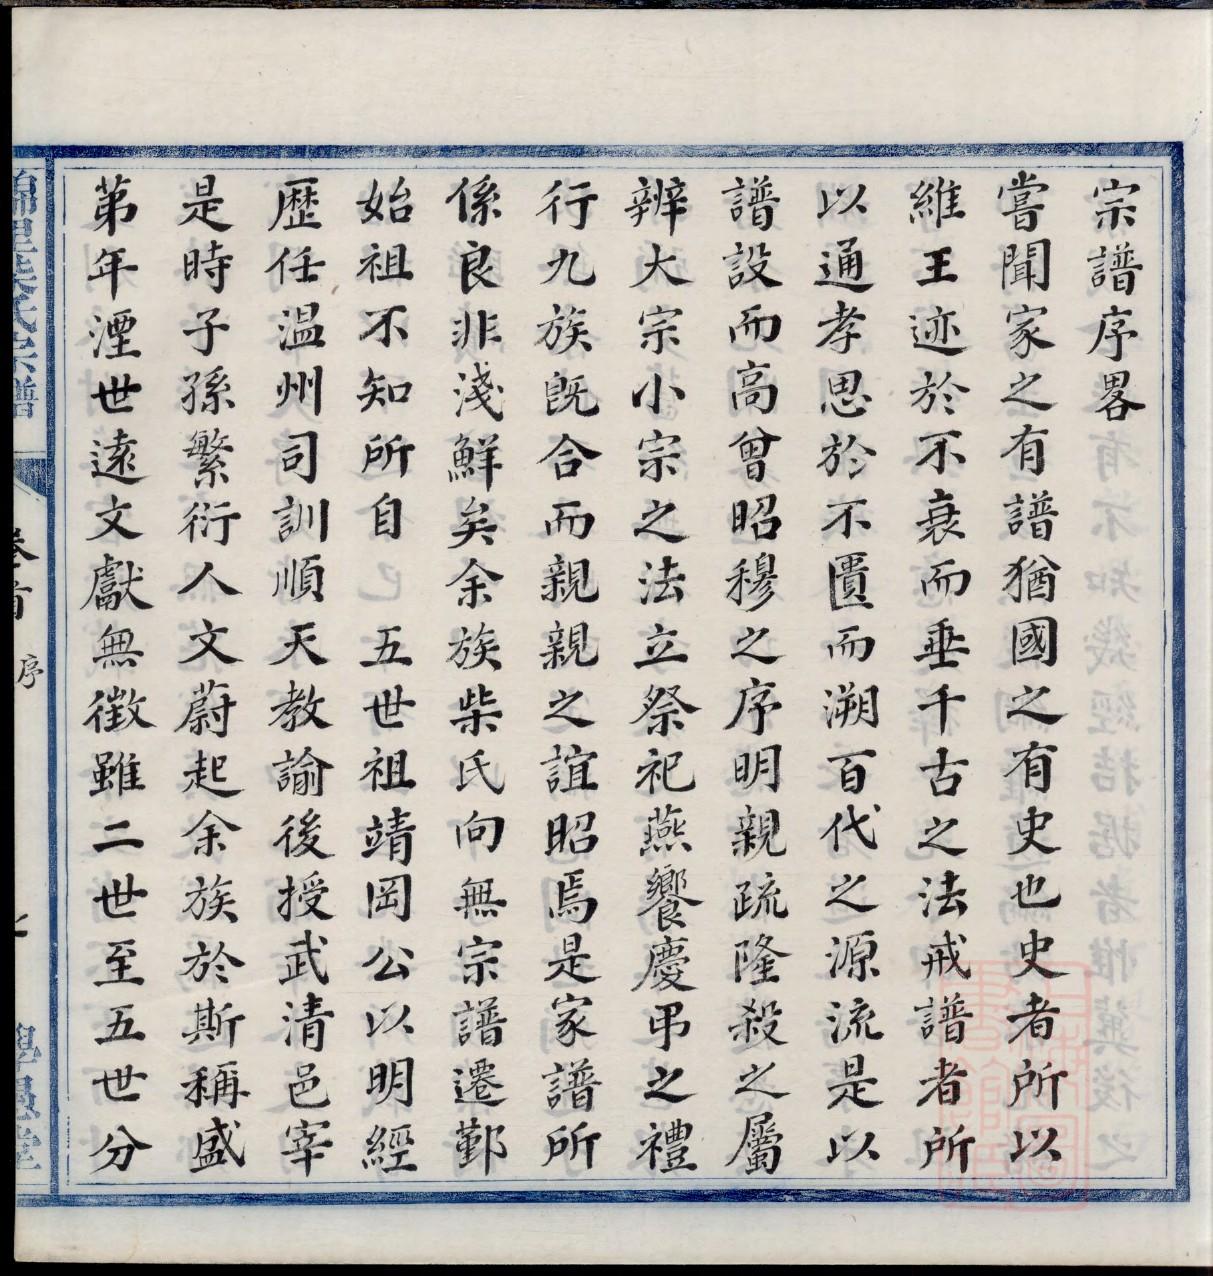 宗譜序畧
嘗聞家之有譜猶國之有史也史者所以
維王迹於不衰而垂千古之法戒譜者所
以通孝思於不匱而溯百代之源流是以
譜設而高曾昭穆之序明親疏隆殺之屬
辨大宗小宗之法立祭祀燕饗慶弔之禮
行九族既合而親親之誼昭焉是家譜所
係良非淺鮮矣余族柴氏向無宗譜遷鄞
始祖不知所自五世祖靖岡公以明經
歷任温州司訓順天教諭後授武清邑宰
是時子孫繁衍人文蔚起余族於斯稱盛
苐年湮世遠文獻無徵雖二世至五世分
柴氏宗譜
卷首
序